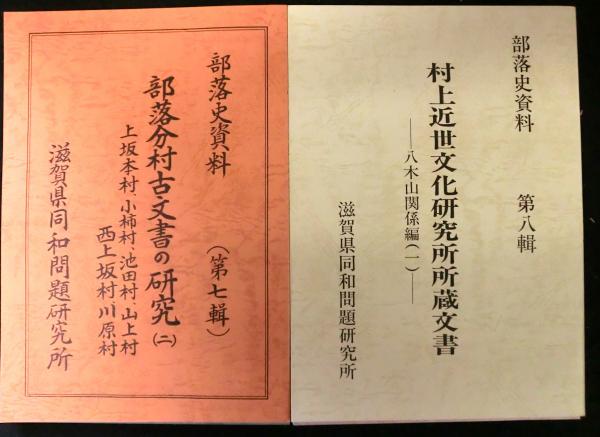 部落史資料 (第七輯)
部落分村古文書の研究(二)
上坂本村、小柿村、池田村、山上村
西上坂村、川原村
滋賀県同和問題研究所
部落史資料 第八輯
村上近世文化研究所所蔵文書
――八木山関係編(一)――
滋賀県同和問題研究所